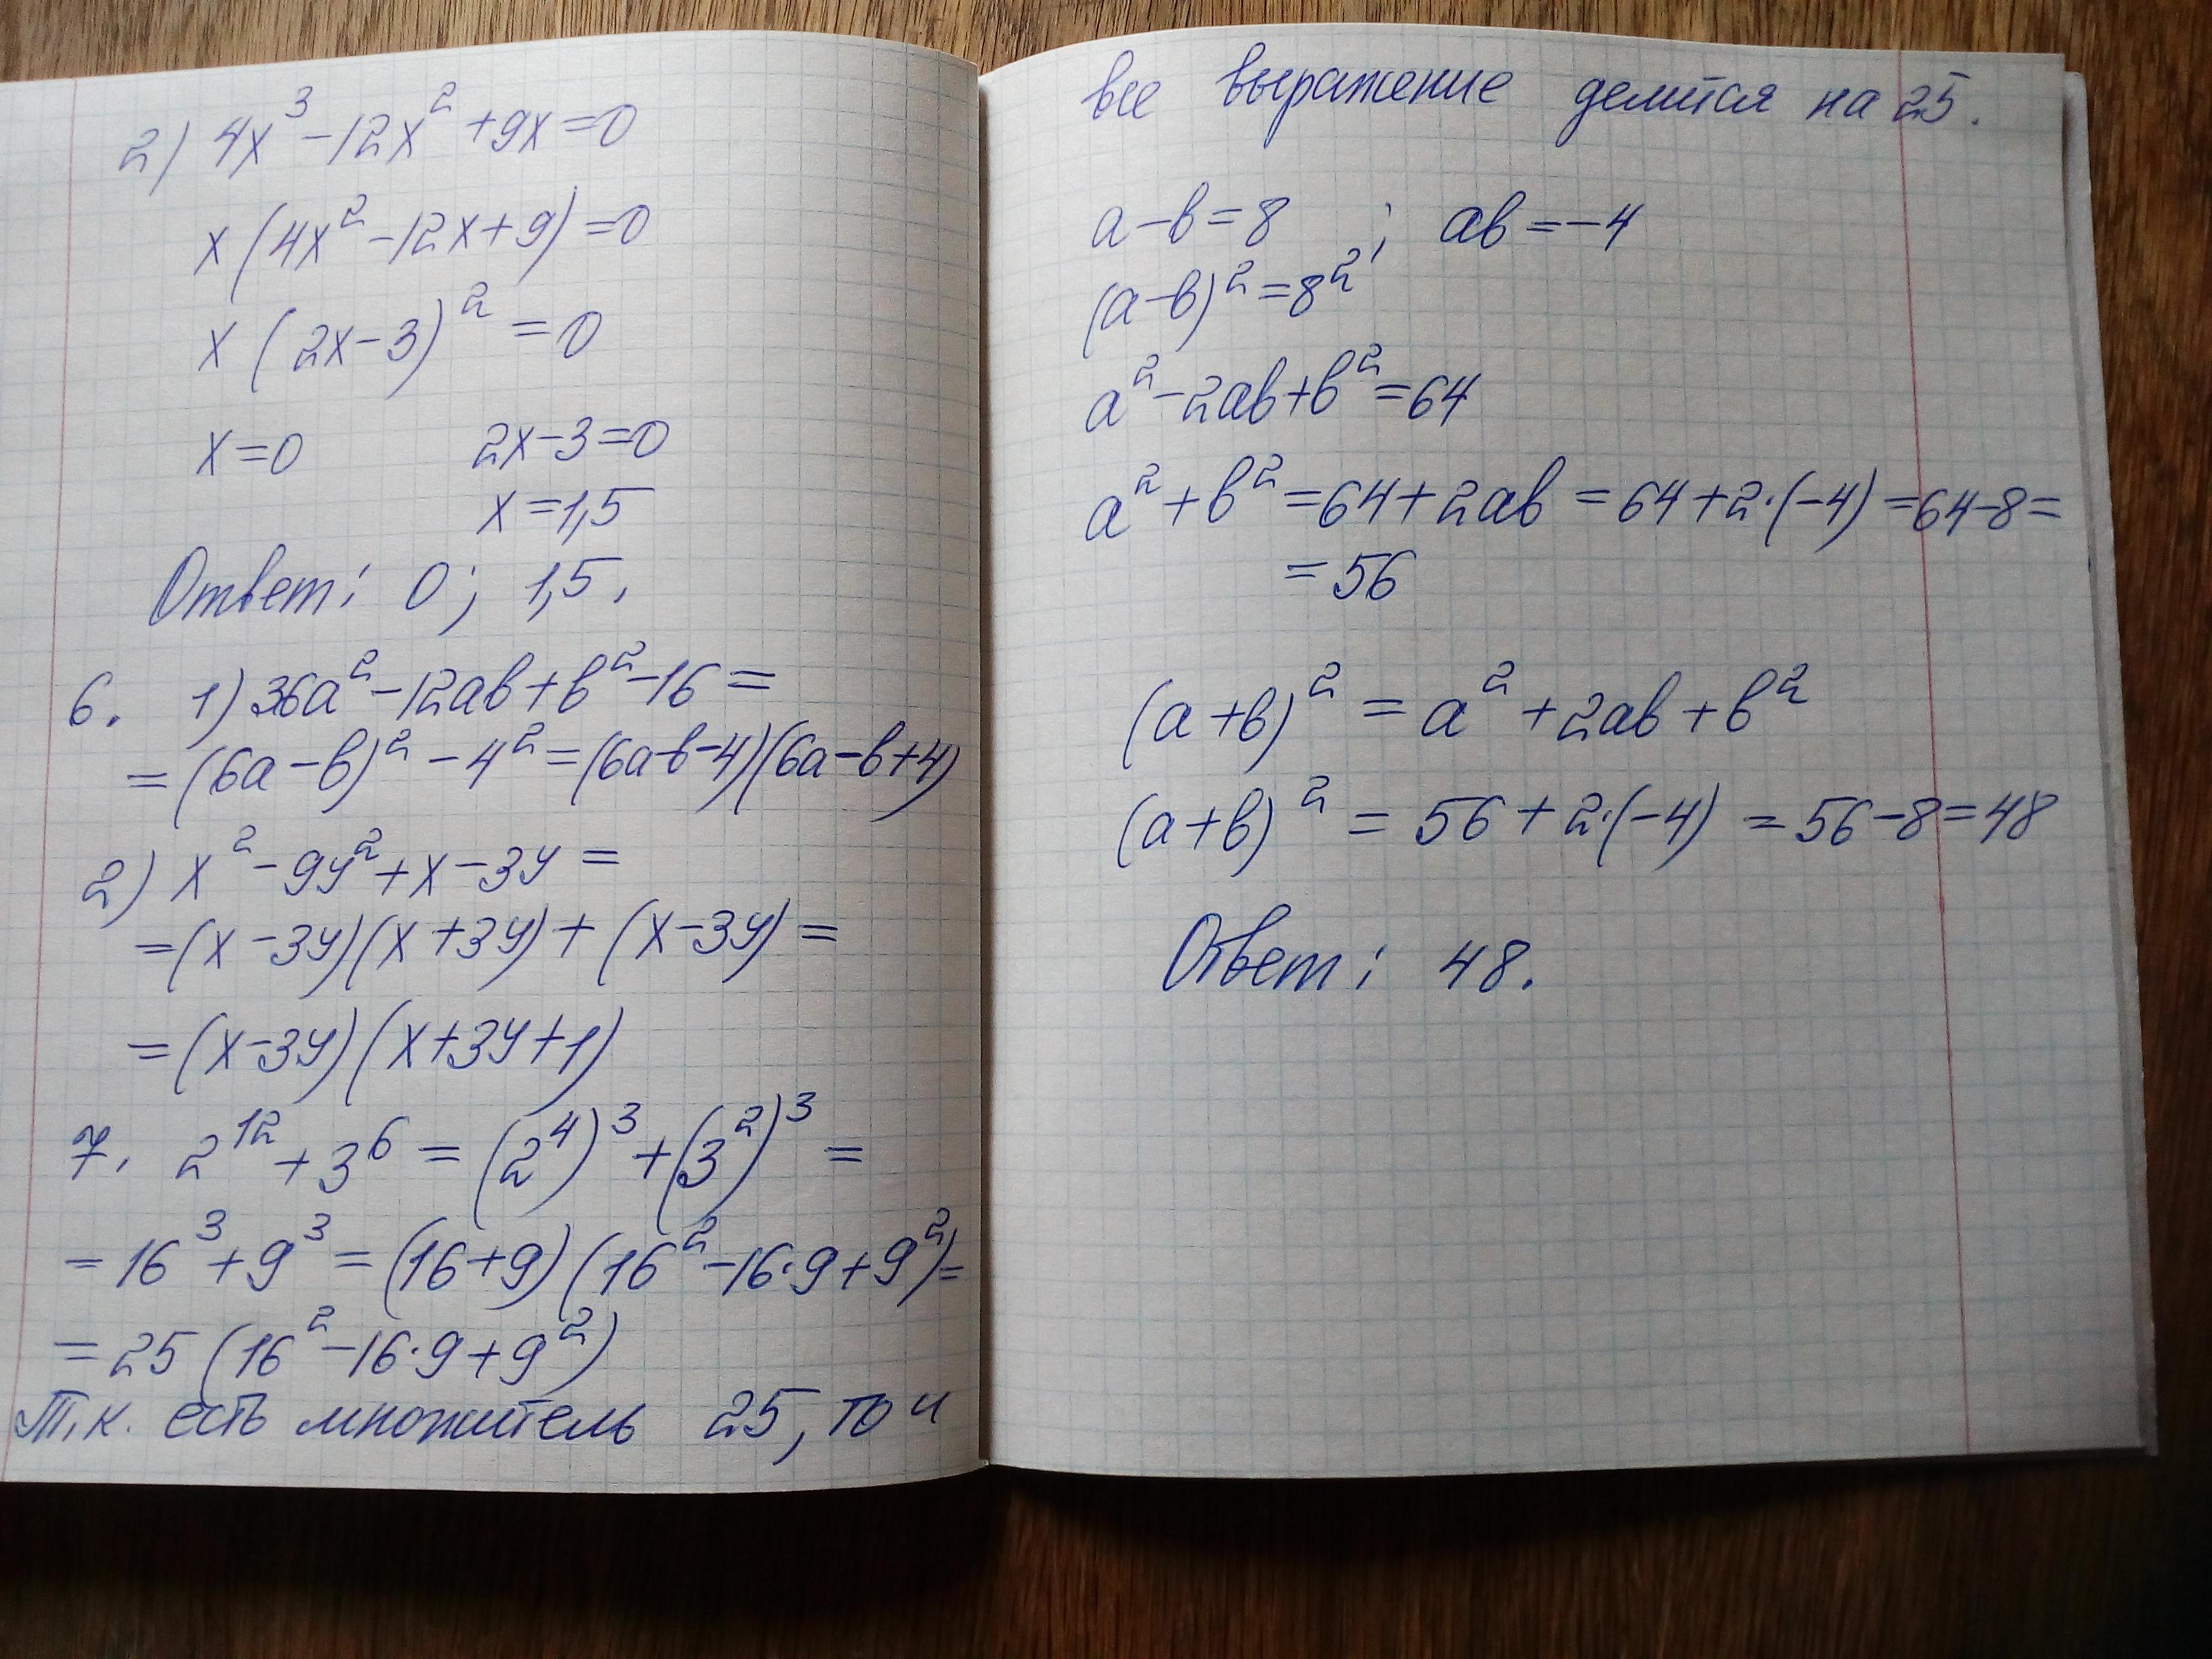 2) 4x³-12x²+9x=0
x(4x²-12x+9)=0
x(2x-3)²=0
x=0 2x-3=0
x=1,5
Ответ: 0; 1,5.
6. 1) 36a²-12ab+b²-16=
=(6a-b)²-4²=(6a-b-4)(6a-b+4)
2) x²-9y²+x-3y=
=(x-3y)(x+3y)+(x-3y)=
=(x-3y)(x+3y+1)
7. 2¹²+3⁶=(2⁴)³+(3²)³=
=16³+9³=(16+9)(16²-16·9+9²)=
=25(16²-16·9+9²)
Т.к. есть множитель 25, то и
все выражение делится на 25.
a-b=8 ; ab=-4
(a-b)²=8²
a²-2ab+b²=64
a²+b²=64+2ab=64+2·(-4)=64-8=
=56
(a+b)²=a²+2ab+b²
(a+b)²=56+2·(-4)=56-8=48
Ответ: 48.